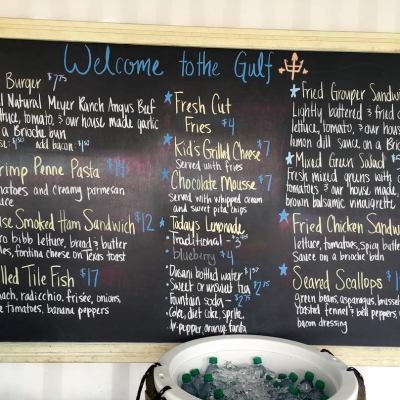 Welcome to the Gulf
Burger $7.75
Natural Meyer Ranch Angus Beef
lettuce, tomato, & our house made garlic
a Brioche bun
add bacon
Penne Pasta $14
tomatoes and creamy parmesan
sauce
Smoked Ham Sandwich $12
bibb lettuce, bread & butter
fontina cheese on Texas toast
Tile Fish $17
radicchio, frisée, onions,
tomatoes, banana peppers
Fresh Cut
Fries $4
Kid's Grilled Cheese $7
Served with fries
Chocolate Mousse $7
served with whipped cream
and sweet pita chips
Today's Lemonade
Traditional -
blueberry $4
Dasani bottled water
Sweet or unsweet tea $2.75
Fountain soda - $2.75
Coke, diet coke, sprite,
dr. pepper, orange fanta
Fried Grouper
Lightly battered & fried
lettuce, tomato, & our house
lemon dill sauce on a
Mixed Green Salad
Fresh mixed greens with
tomatoes & our house made
brown balsamic vinaigrette
Fried Chicken
lettuce, tomatoes, spicy
Sauce on a brioche bun
Seared Scallops
green beans, asparagus,
roasted fennel & bell peppers,
bacon dressing